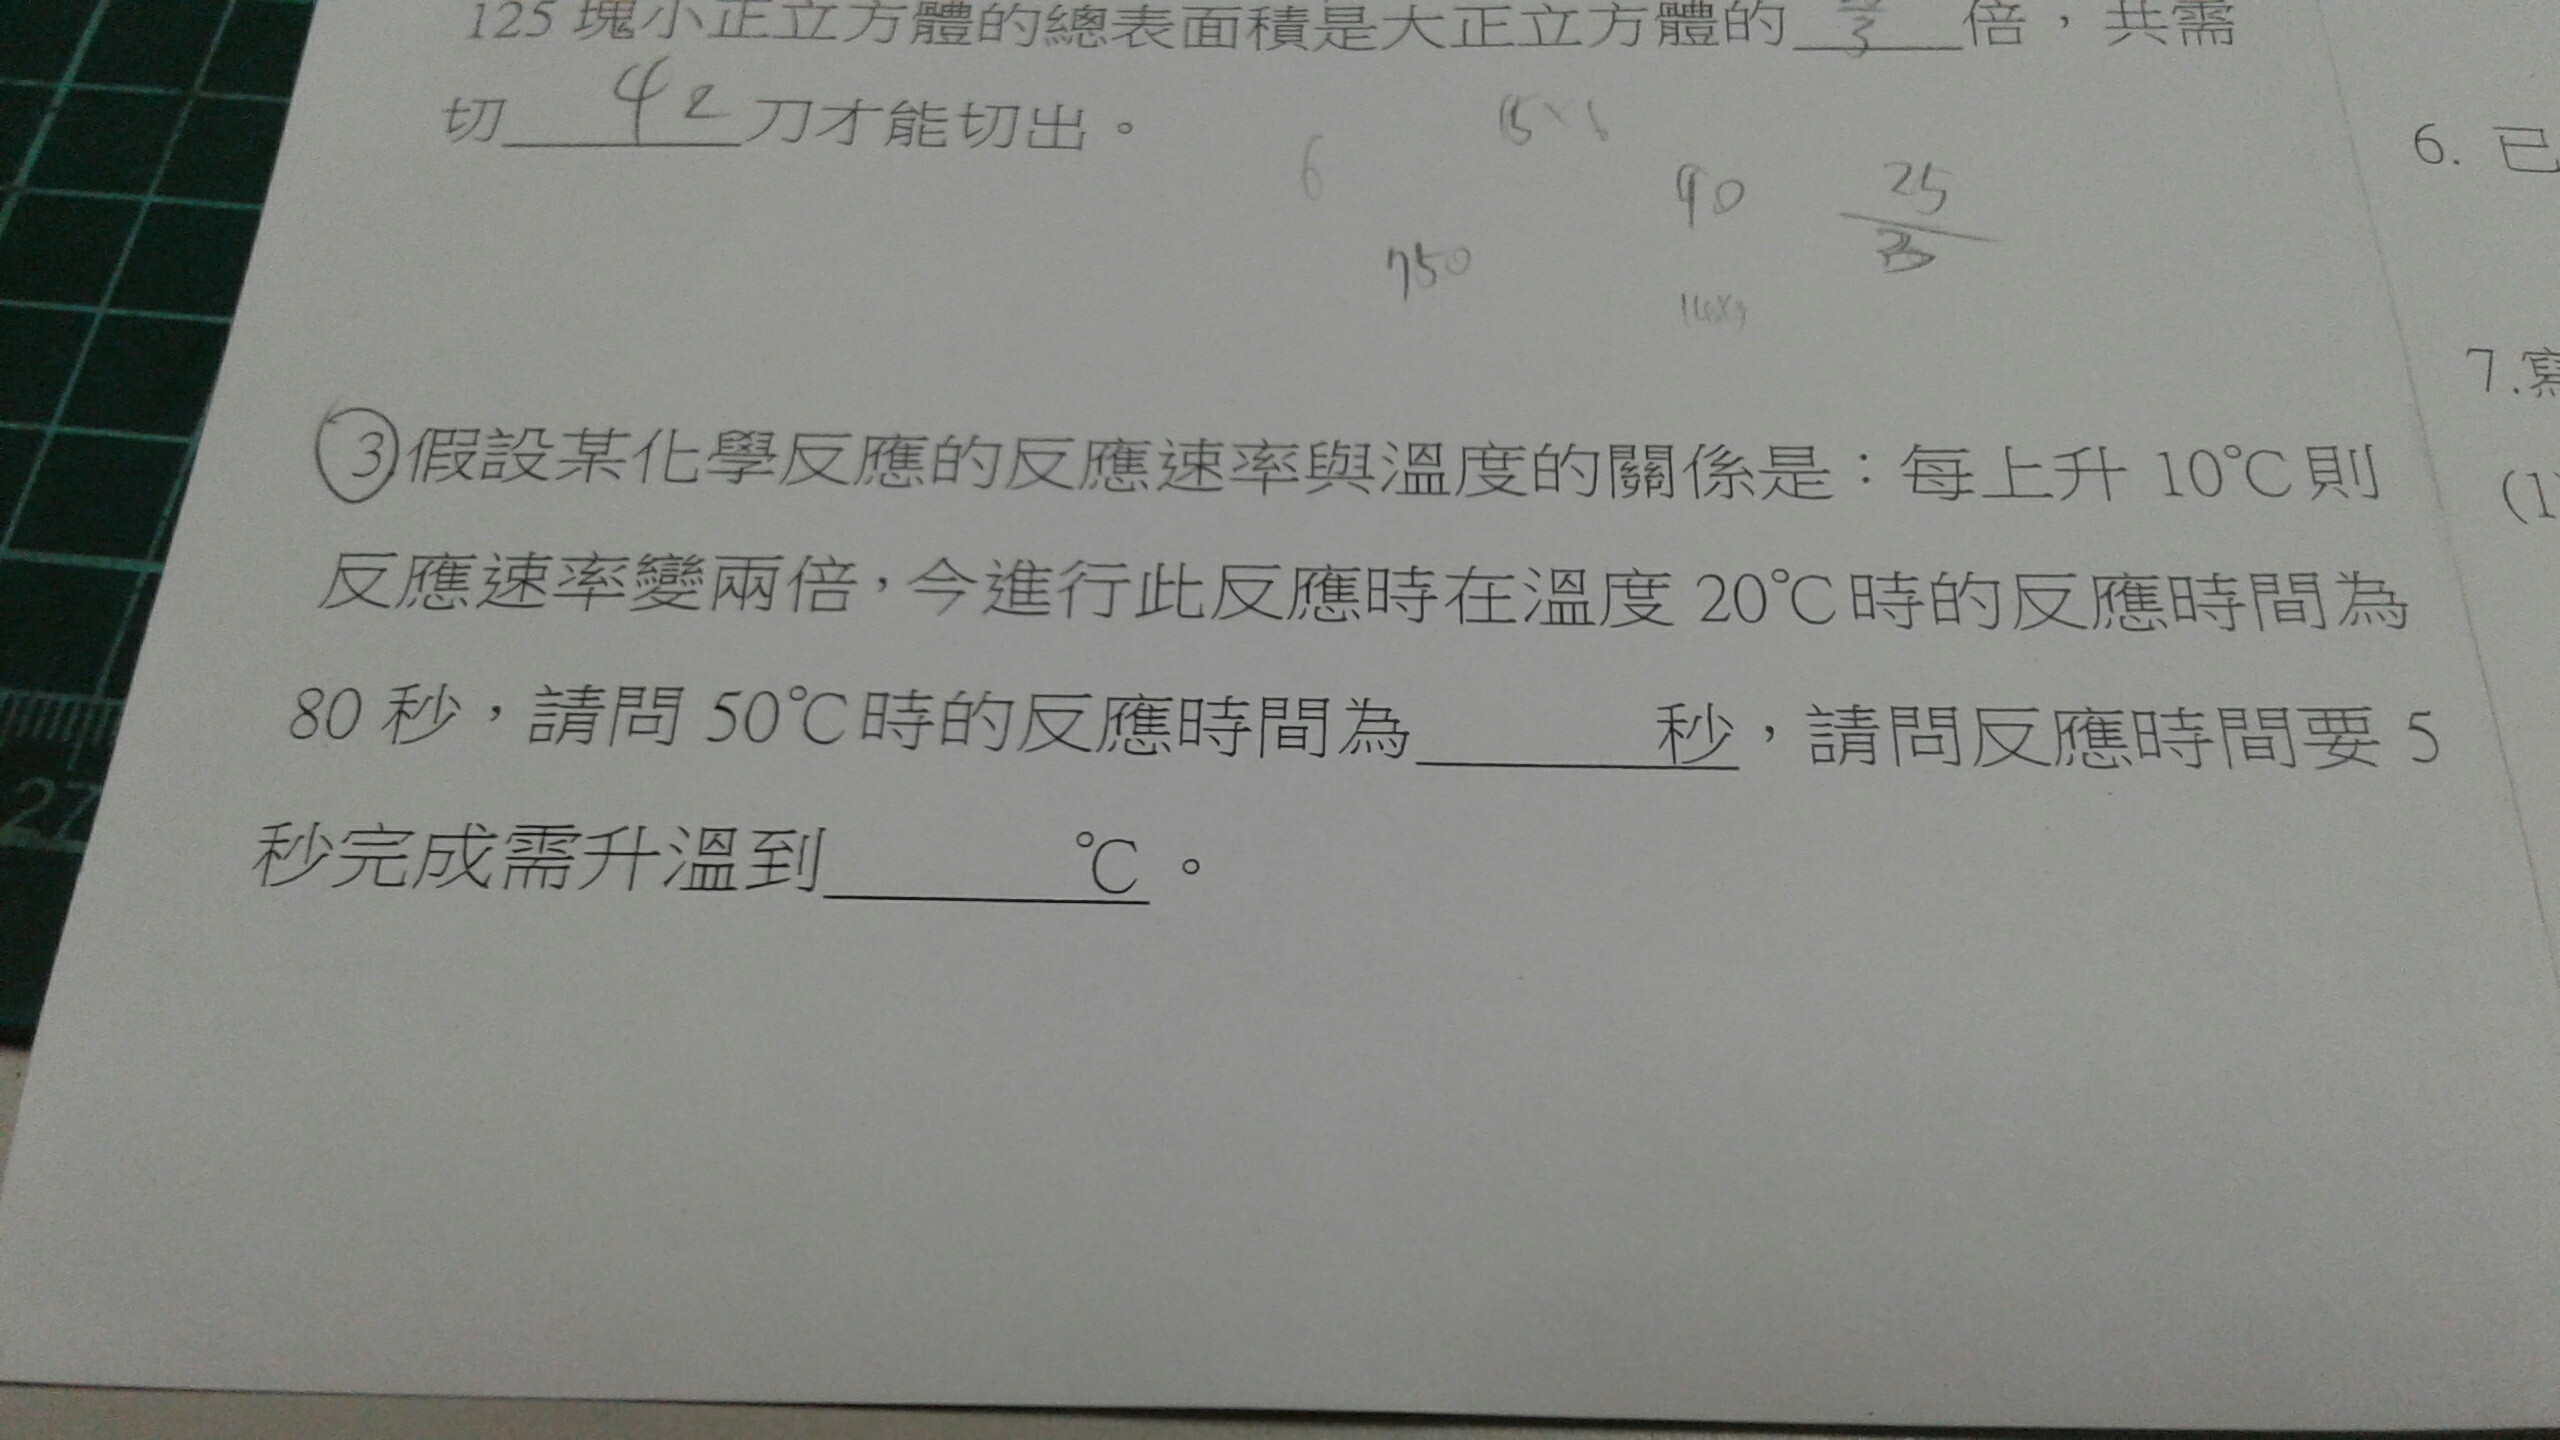 125 塊小正立方體的總表面積是大正立方體的 3 倍，共需
切 42 刀才能切出。
6
750
90
25
3
③假設某化學反應的反應速率與溫度的關係是：每上升 10℃則
反應速率變兩倍，今進行此反應時在溫度 20℃時的反應時間為
80 秒，請問 50℃時的反應時間為 秒，請問反應時間要 5
秒完成需升溫到 ℃。
27
6. 已
7.寫
(1